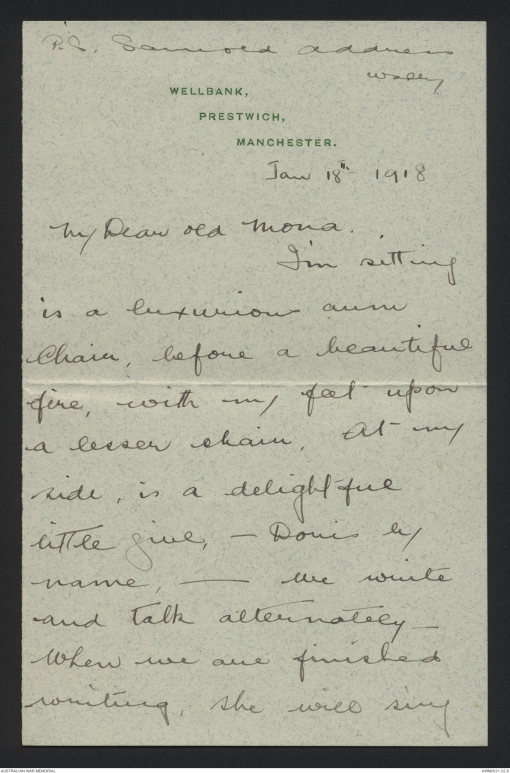 P.S. Same old address
Wally
WELLBANK,
PRESTWICH,
MANCHESTER.
Jan 18th 1918
My Dear old Mona.
I'm sitting
is a luxurious arm
Chair, before a beautiful
fire, with my feet upon
a lesser chair. At my
side, is a delightful
little girl, — Doris by
name, — we write
and talk alternately —
When we are finished
writing, she will sing
AUSTRALIAN WAR MEMORIAL
AWM2021.22.9